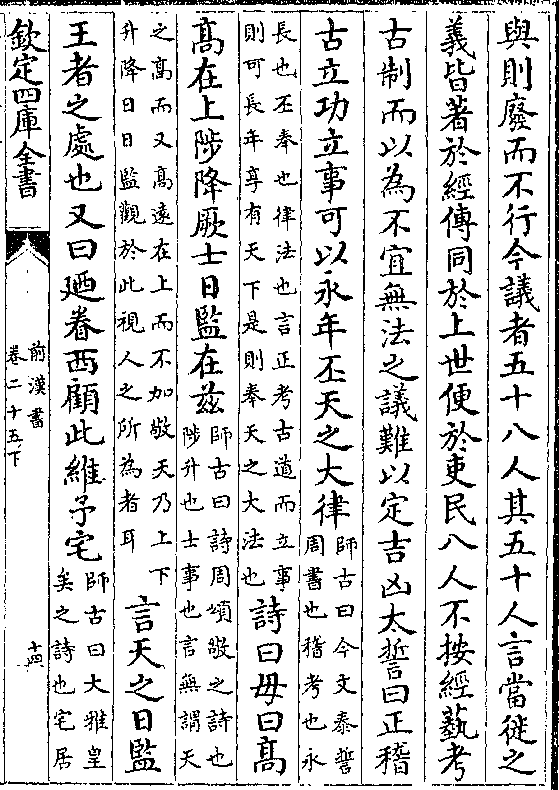 與則廢而不行今議者五十八人其五十人言當徙之
義皆著於經傳同於上世便於吏民八人不按經藝考
古制而以為不宜無法之議難以定吉凶太誓曰正稽
古立功立事可以永年丕天之大律
師古曰今文泰誓
周書也稽考也永
長也丕奉也律法也言正考古道而立事
則可長年享有天下是則奉天之大法也
詩曰毋曰髙
髙在上陟降厥士日監在兹
師古曰詩周頌敬之詩也
陟升也士事也言無謂天
之髙而又髙遠在上而不加敬天乃上下
升降日日監觀於此視人之所為者耳
言天之日監
王者之處也又曰廼眷西顧此維予宅
師古曰大雅皇
矣之詩也宅居
欽定四庫全書
前漢書
卷二十五下
十四